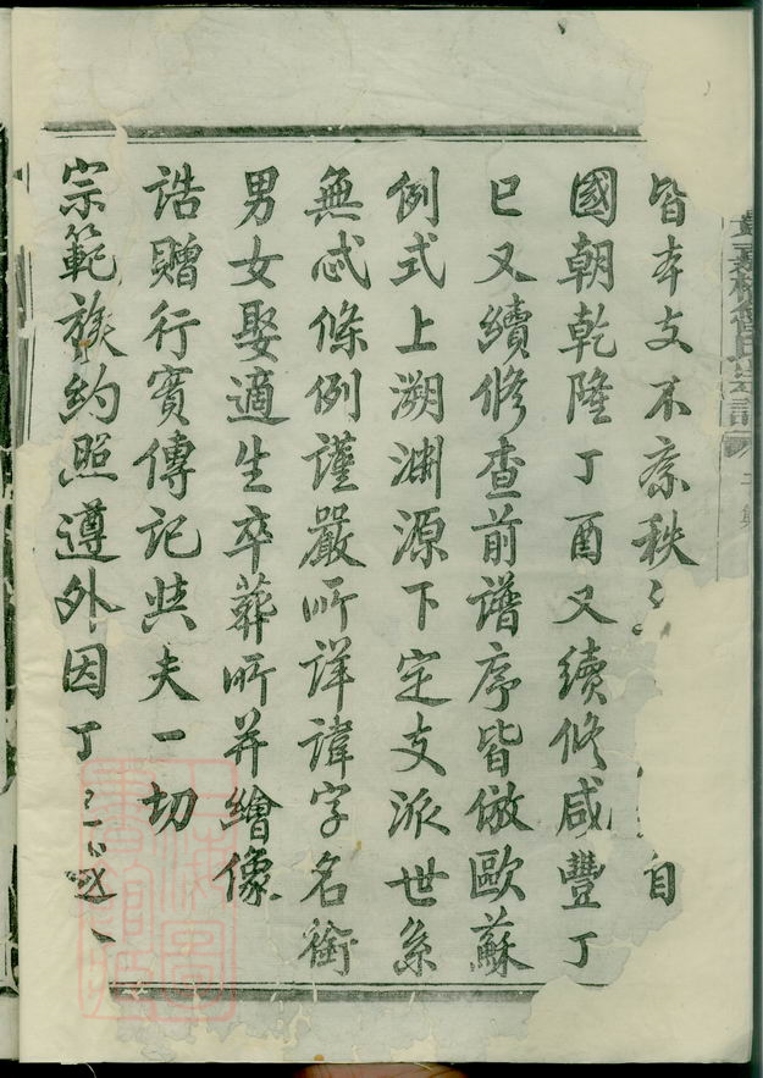 皆本支不紊秩〻自
國朝乾隆丁酉又續修咸豐丁
巳又續修查前譜序皆倣歐蘇
例式上溯淵源下定支派世系
無忒條例謹嚴所詳諱字名銜
男女娶適生卒葬所并繪像
誥贈行實傳記與夫一切
宗範族約照遵外因丁
氏宗譜